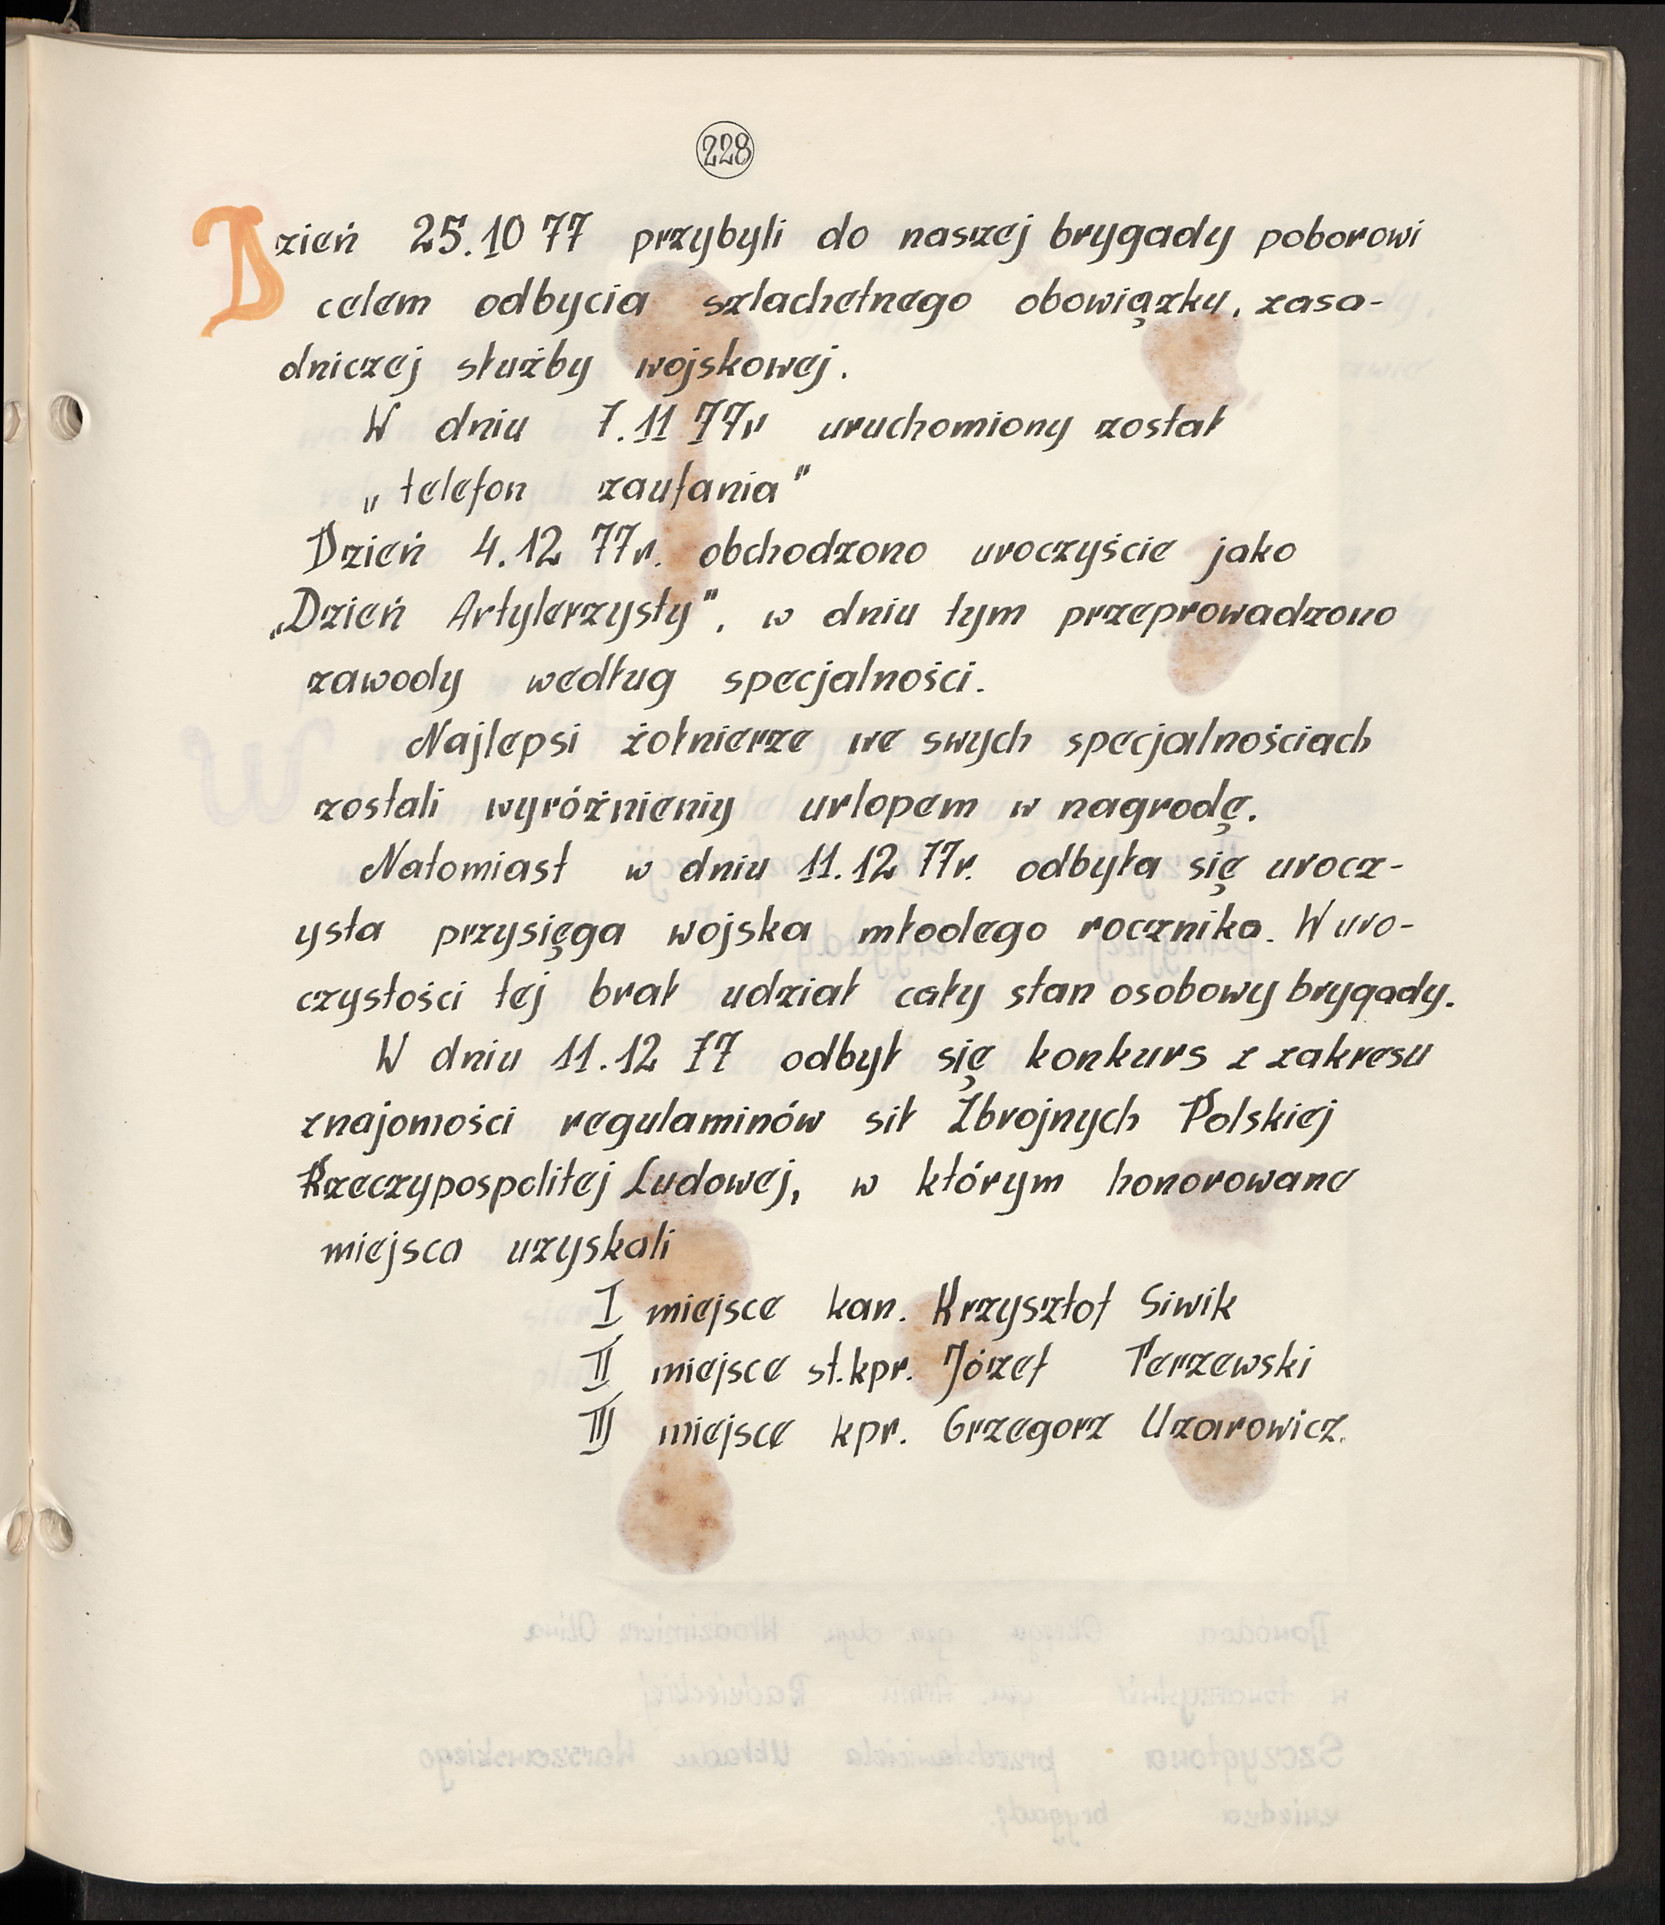 228
Dzień 25.10 77 przybyli do naszej brygady poborowi
celem odbycia szlachetnego obowiązku, zasa-
dniczej służby wojskowej.
W dniu 7.11 77r uruchomiony został
„telefon zaufania"
Dzień 4.12 77r. obchodzono uroczyście jako
„Dzień Artylerzysty", w dniu tym przeprowadzono
zawody według specjalności.
Najlepsi żołnierze we swych specjalnościach
zostali wyróżnieniy urlopem w nagrodę.
Natomiast w dniu 11.12 77r. odbyła się urocz-
ysta przysięga wojska młodego rocznika. W uro-
czystości tej brał udział cały stan osobowy brygady.
W dniu 11.12 77 odbył się konkurs z zakresu
znajomości regulaminów sił Zbrojnych Polskiej
Rzeczypospolitej Ludowej, w którym honorowane
miejsca uzyskali
I miejsce kan. Krzysztof Siwik
II miejsce st.kpr. Józef Perzewski
III miejsce kpr. Grzegorz Uzarowicz.